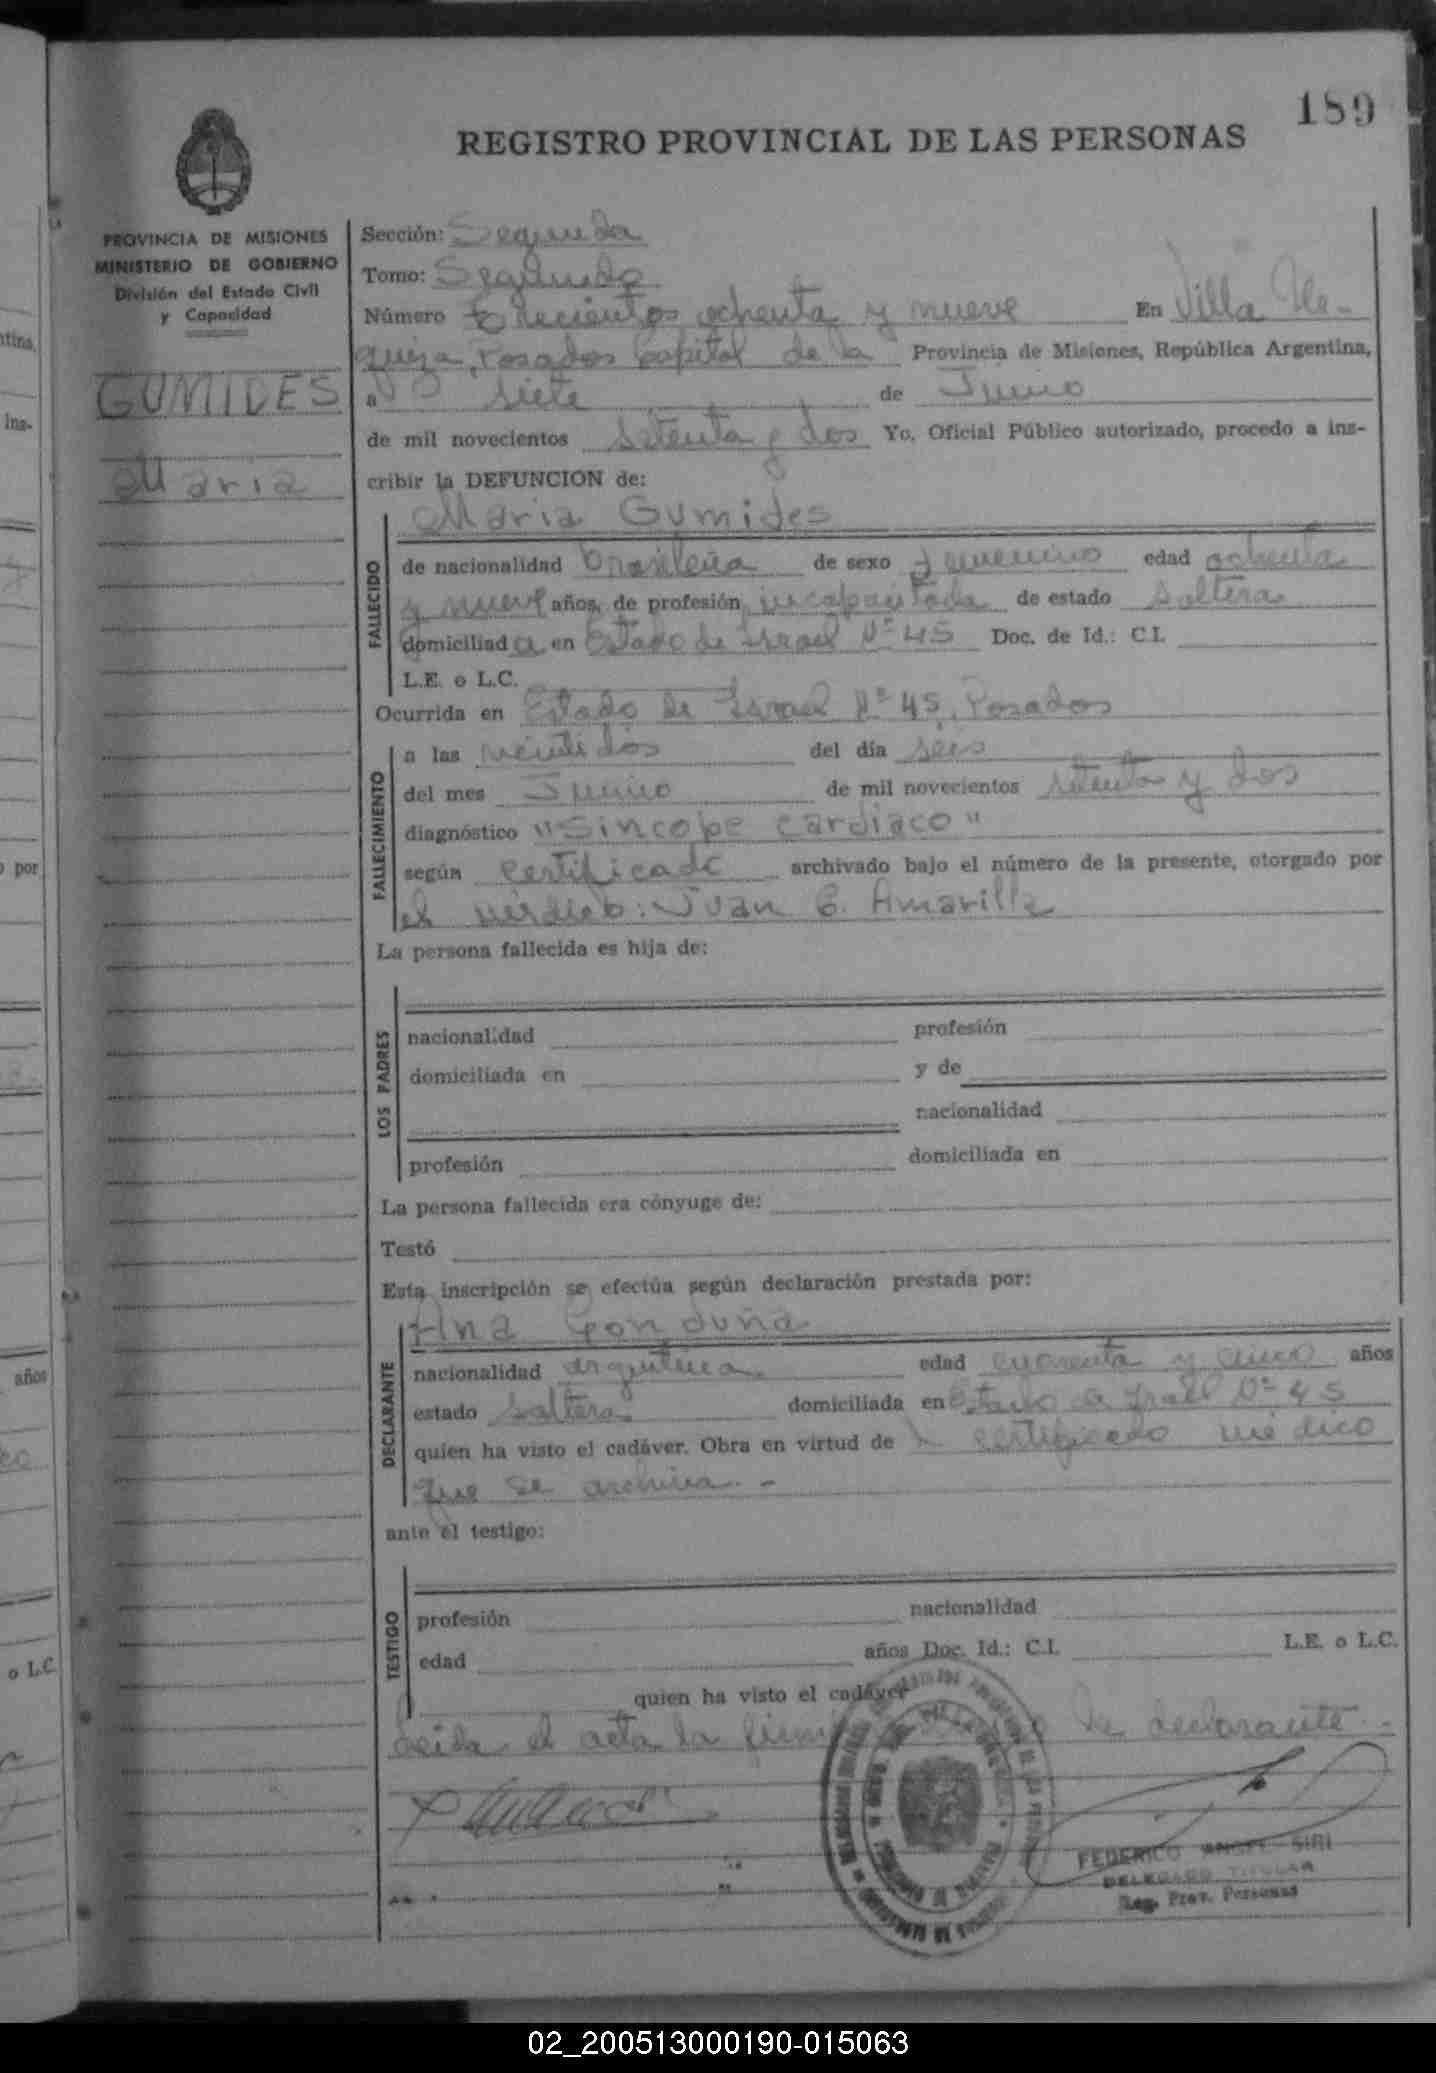 189
REGISTRO PROVINCIAL DE LAS PERSONAS
PROVINCIA DE MISIONES
MINISTERIO DE GOBIERNO
División del Estado Civil
y Capacidad
GUMIDES
Maria
Sección: Segunda
Tomo: Segundo
Número Trecientos ochenta y nueve En Villa Ur-
quiza, Posadas Capital de la Provincia de Misiones, República Argentina,
a siete de Junio
de mil novecientos setenta y dos Yo, Oficial Público autorizado, procedo a ins-
cribir la DEFUNCION de:
Maria Gumides
FALLECIDO
de nacionalidad brasileña de sexo femenino edad ochenta
y nueve años, de profesión incapacitada de estado soltera
domiciliada en Estado de Israel Nº 45 Doc. de Id.: C.I.
L.E. o L.C.
Ocurrida en Estado de Israel Nº 45, Posadas
FALLECIMIENTO
a las veintidós del día seis
del mes Junio de mil novecientos setenta y dos
diagnóstico "Sincope cardiaco"
según certificado archivado bajo el número de la presente, otorgado por
el médico: Juan E. Amarilla
La persona fallecida es hija de:
LOS PADRES
nacionalidad profesión
domiciliada en y de
nacionalidad
profesión domiciliada en
La persona fallecida era cónyuge de:
Testó
Esta inscripción se efectúa según declaración prestada por:
Ana
DECLARANTE
nacionalidad argentina edad cuarenta y cinco años
estado soltera domiciliada en Estado de Israel Nº 45
quien ha visto el cadáver. Obra en virtud de certificado médico
que se archiva.-
ante el testigo:
TESTIGO
profesión nacionalidad
edad años Doc. Id.: C.I. L.E. o L.C.
quien ha visto el cadáver
Leida el acta la declarante.-
FEDERICO ANGEL SIRI
DELEGADO TITULAR
Reg. Prov. Personas
ntina,
ins-
o por
años
o L.C.
02_200513000190-015063